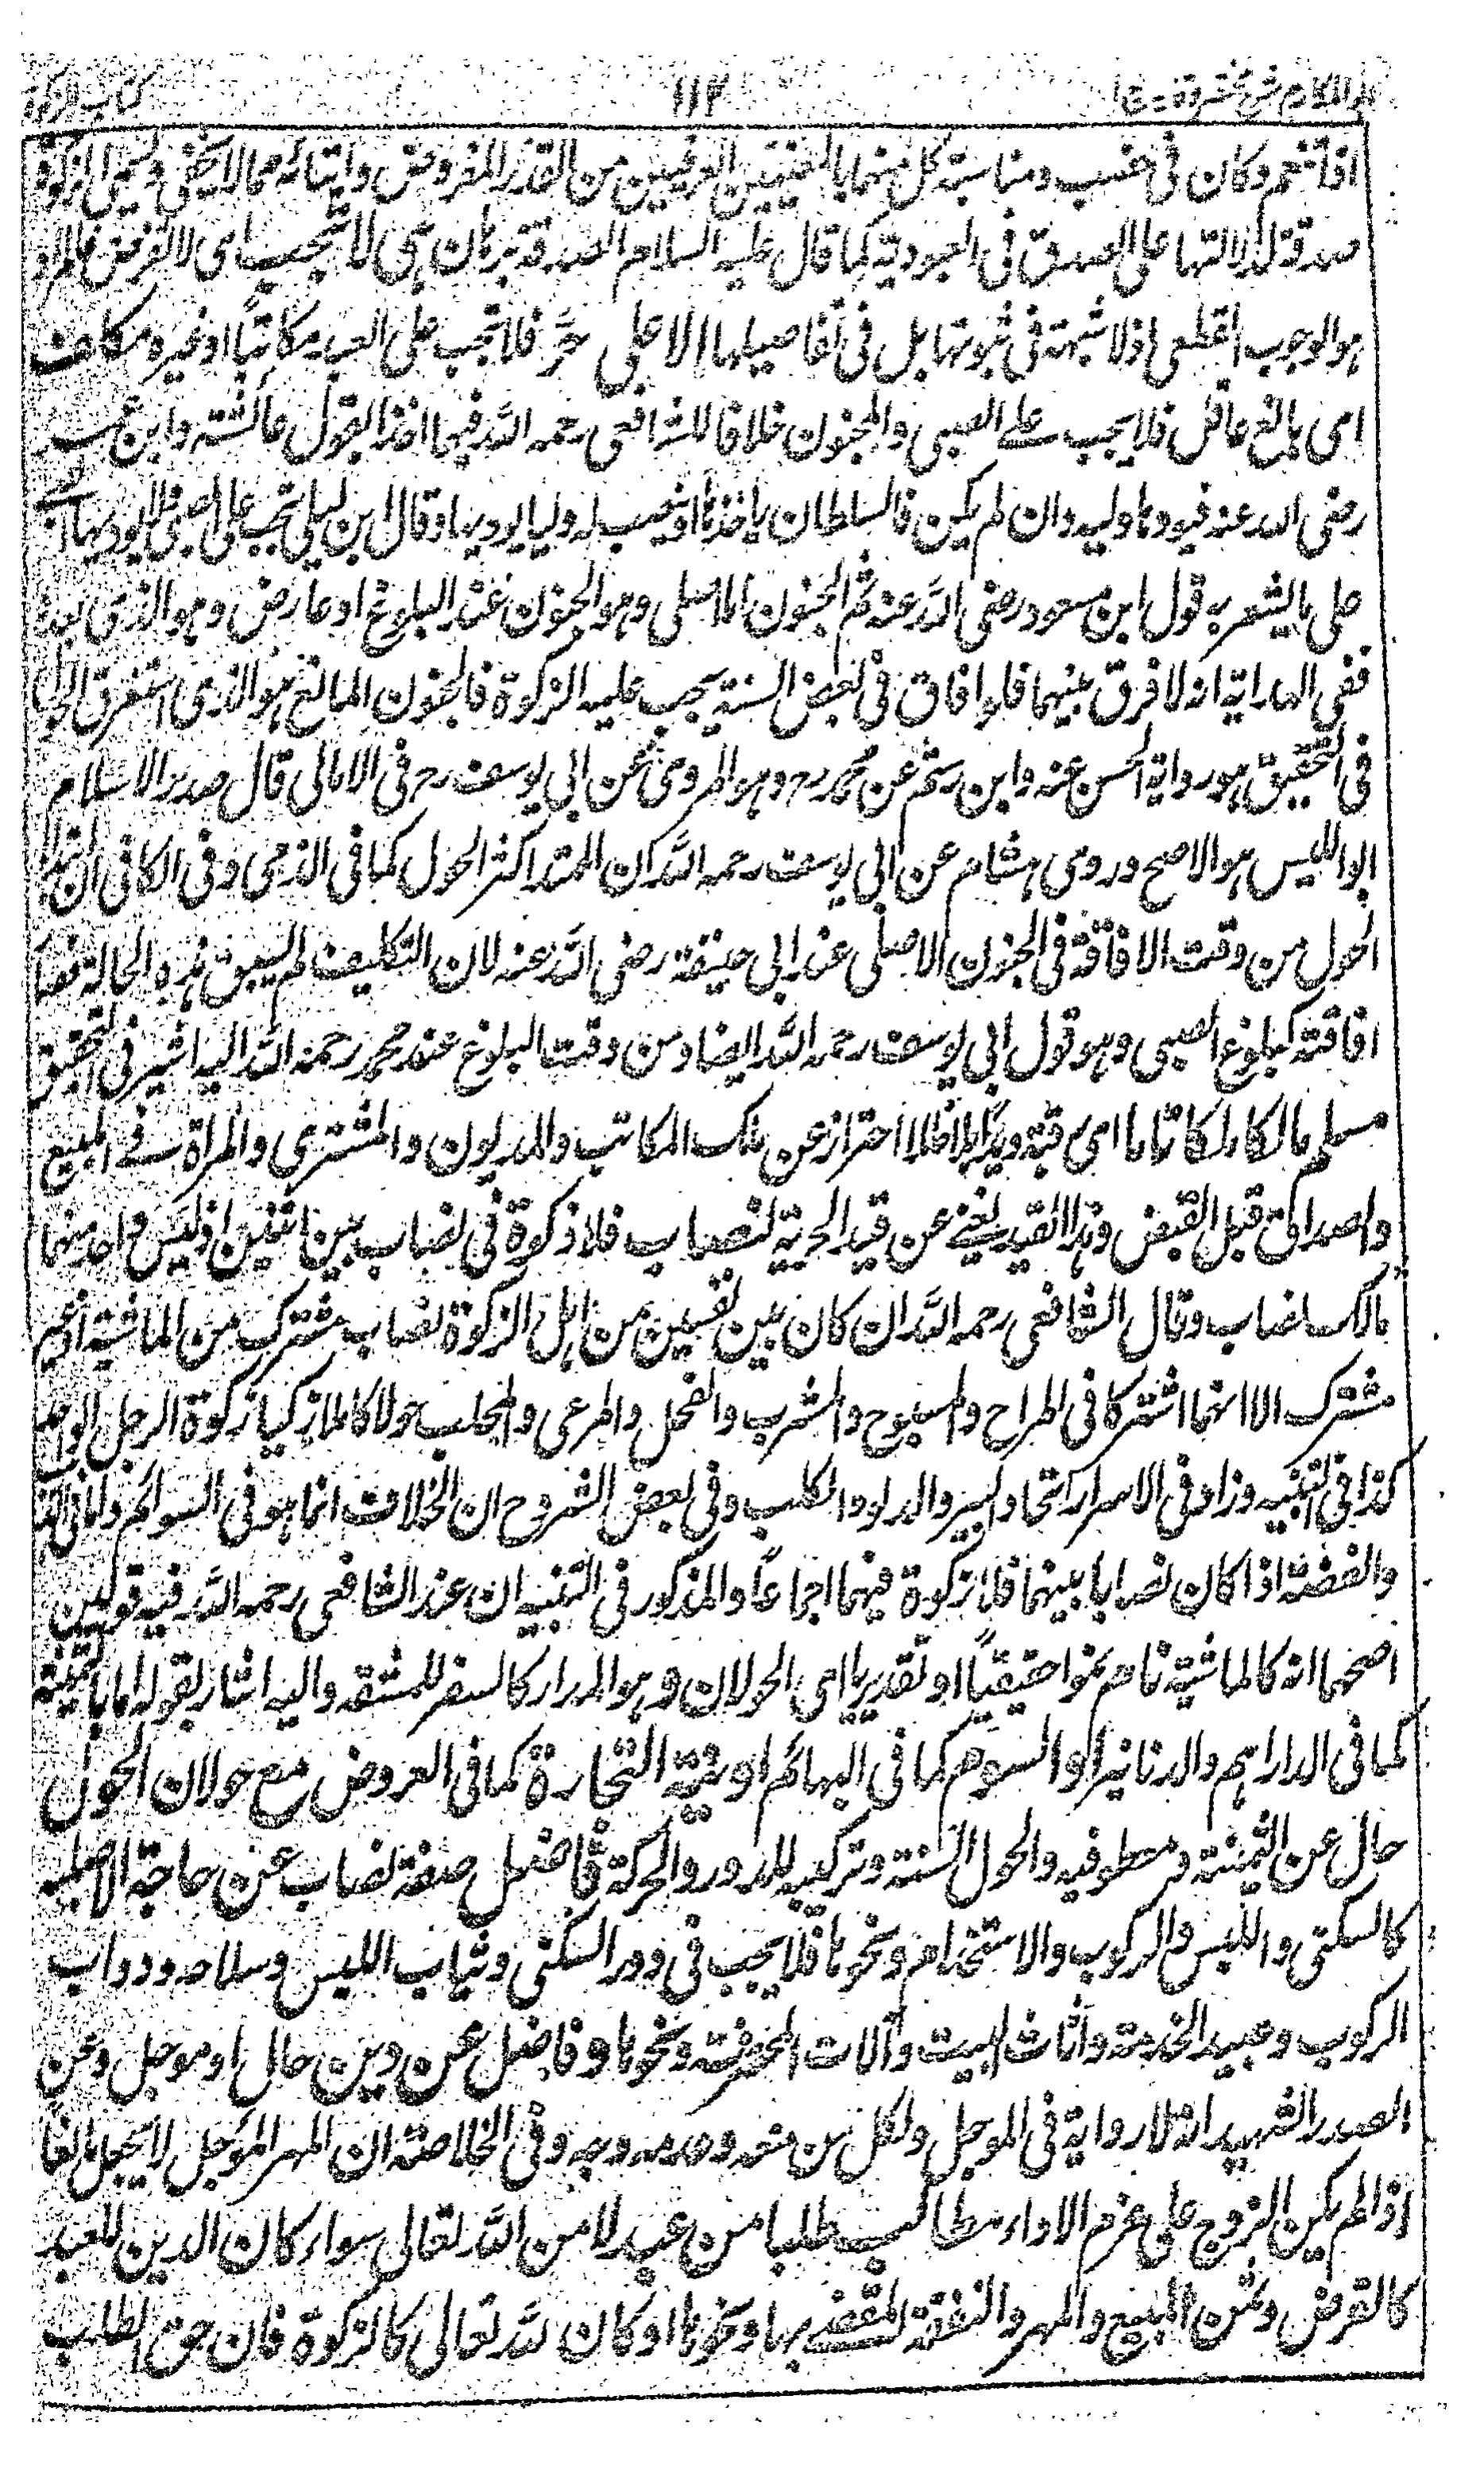 كتاب الزكوة ١١٢
اذا تنعم وكان فى خصب ومناسبة كل منهما بالمعنيين العرفيين من القدر المفروض وايتائه مما لا يخفى وتسمى الزكوة
صدقة لدلالتها على الصدق فى العبودية كما قال عليه السلام الصدقة برهان هى لا تجب اى لا تفرض فالمراد
هو الوجوب القطعى اذ لا شبهة فى ثبوتها بل فى تفاصيلها الا على حر فلا تجب على العبد مكاتبا او غيره مكلف
اى بالغ عاقل فلا يجب على الصبى والمجنون خلافا للشافعى رحمه الله فيهما اخذا بقول عائشة وابن عمر
رضى الله عنه فيودها وليه وان لم يكن فالسلطان ياخذها او ينصب له وليا يوديها وقال ابن ليلى تجب على الصبى ولا يوديها
على ما يشعر به قول ابن مسعود رضى الله عنه ثم الجنون اما اصلى وهو الجنون عند البلوغ او عارض وهو الذى بعده
ففى الهداية انه لا فرق بينهما فلو افاق فى بعض السنة يجب عليه الزكوة فالجنون المانع هو الذى استغرق الحول
فى التحقيق هو رواية الحسن عنه وابن رستم عن محمد رح وهو المروى عن ابى يوسف رح فى الامالى قال صدر الاسلام
ابو الليس هو الاصح وروى هشام عن ابى يوسف رحمه الله ان الممتد اكثر الحول كما فى الذمى وفى الكافى ان ابتداء
الحول من وقت الافاقة فى الجنون الاصلى عند ابى حنيفة رضى الله عنه لان التكليف لم يسبق هذه الحالة فصار
افاقته كبلوغ الصبى وهو قول ابى يوسف رحمه الله ايضا ومن وقت البلوغ عند محمد رحمه الله اليه اشير فى التحقيق
مسلم مالك ملكا تاما اى رقبة ويدا احتراز عن ملك المكاتب والمديون والمشترى والمراة فى المبيع
واصداق قبل القبض وهذا القيد يغنى عن قيد الحرية لنصاب فلا زكوة فى نصاب بين اثنين اذ ليس واحد منهما
مالك نصاب وقال الشافعى رحمه الله ان كان بين نفسين من اهل الزكوة نصاب مشترك من الماشية او غير
مشترك الا انهما اشتركا فى المراح والمسرح والشرب والفحل والمرعى والمحلب حولا كاملا زكيا زكوة الرجل الواحد
كذا فى التنبيه وزاد فى الاسرار اتحاد البير والدلو والكلب وفى بعض الشروح ان الخلاف انما هو فى السوائم واما فى
والفضة اذا كان نصابا بينهما فلا زكوة فيهما اجماعا والمذكور فى التنبيه ان عند الشافعى رحمه الله فيه قولين
اصحهما انه كالماشية نام نموا حقيقيا او تقديريا اى الحولان وهو المدار كالسفر للمشقه واليه اشار بقوله اما بالثمنية
كما فى الدراهم والدنانير او السوم كما فى البهائم او نية التجارة كما فى العروض مع حولان الحول
حال عن الثمنية و معطوفيه والحول السنة وتركيبه للدور والحركة فاضل صفة نصاب عن حاجة الاصلية
كالسكنى واللبس والركوب والاستخدام ونحوها فلا يجب فى دور السكنى وثياب اللبس وسلاحه ودواب
الركوب وعبيد الخدمة واثاث البيت وآلات المحترفة ونحوها و فاضل عن دين حال او موجل وعن
الصدر الشهيد انه لا رواية فى الموجل ولكل من منعه وعدمه وجه وفى الخلاصة ان المهر المؤجل لا يجعل مانعا
اذا لم يكن الزوج على عزم الاداء مطالب طلبا من عبد لا من الله تعالى سواء كان الدين للعبد
كالقرض وثمن المبيع والمهر والنفقة المقضى بها ونحوها او كان لله تعالى كالزكوة فان حق الطلب